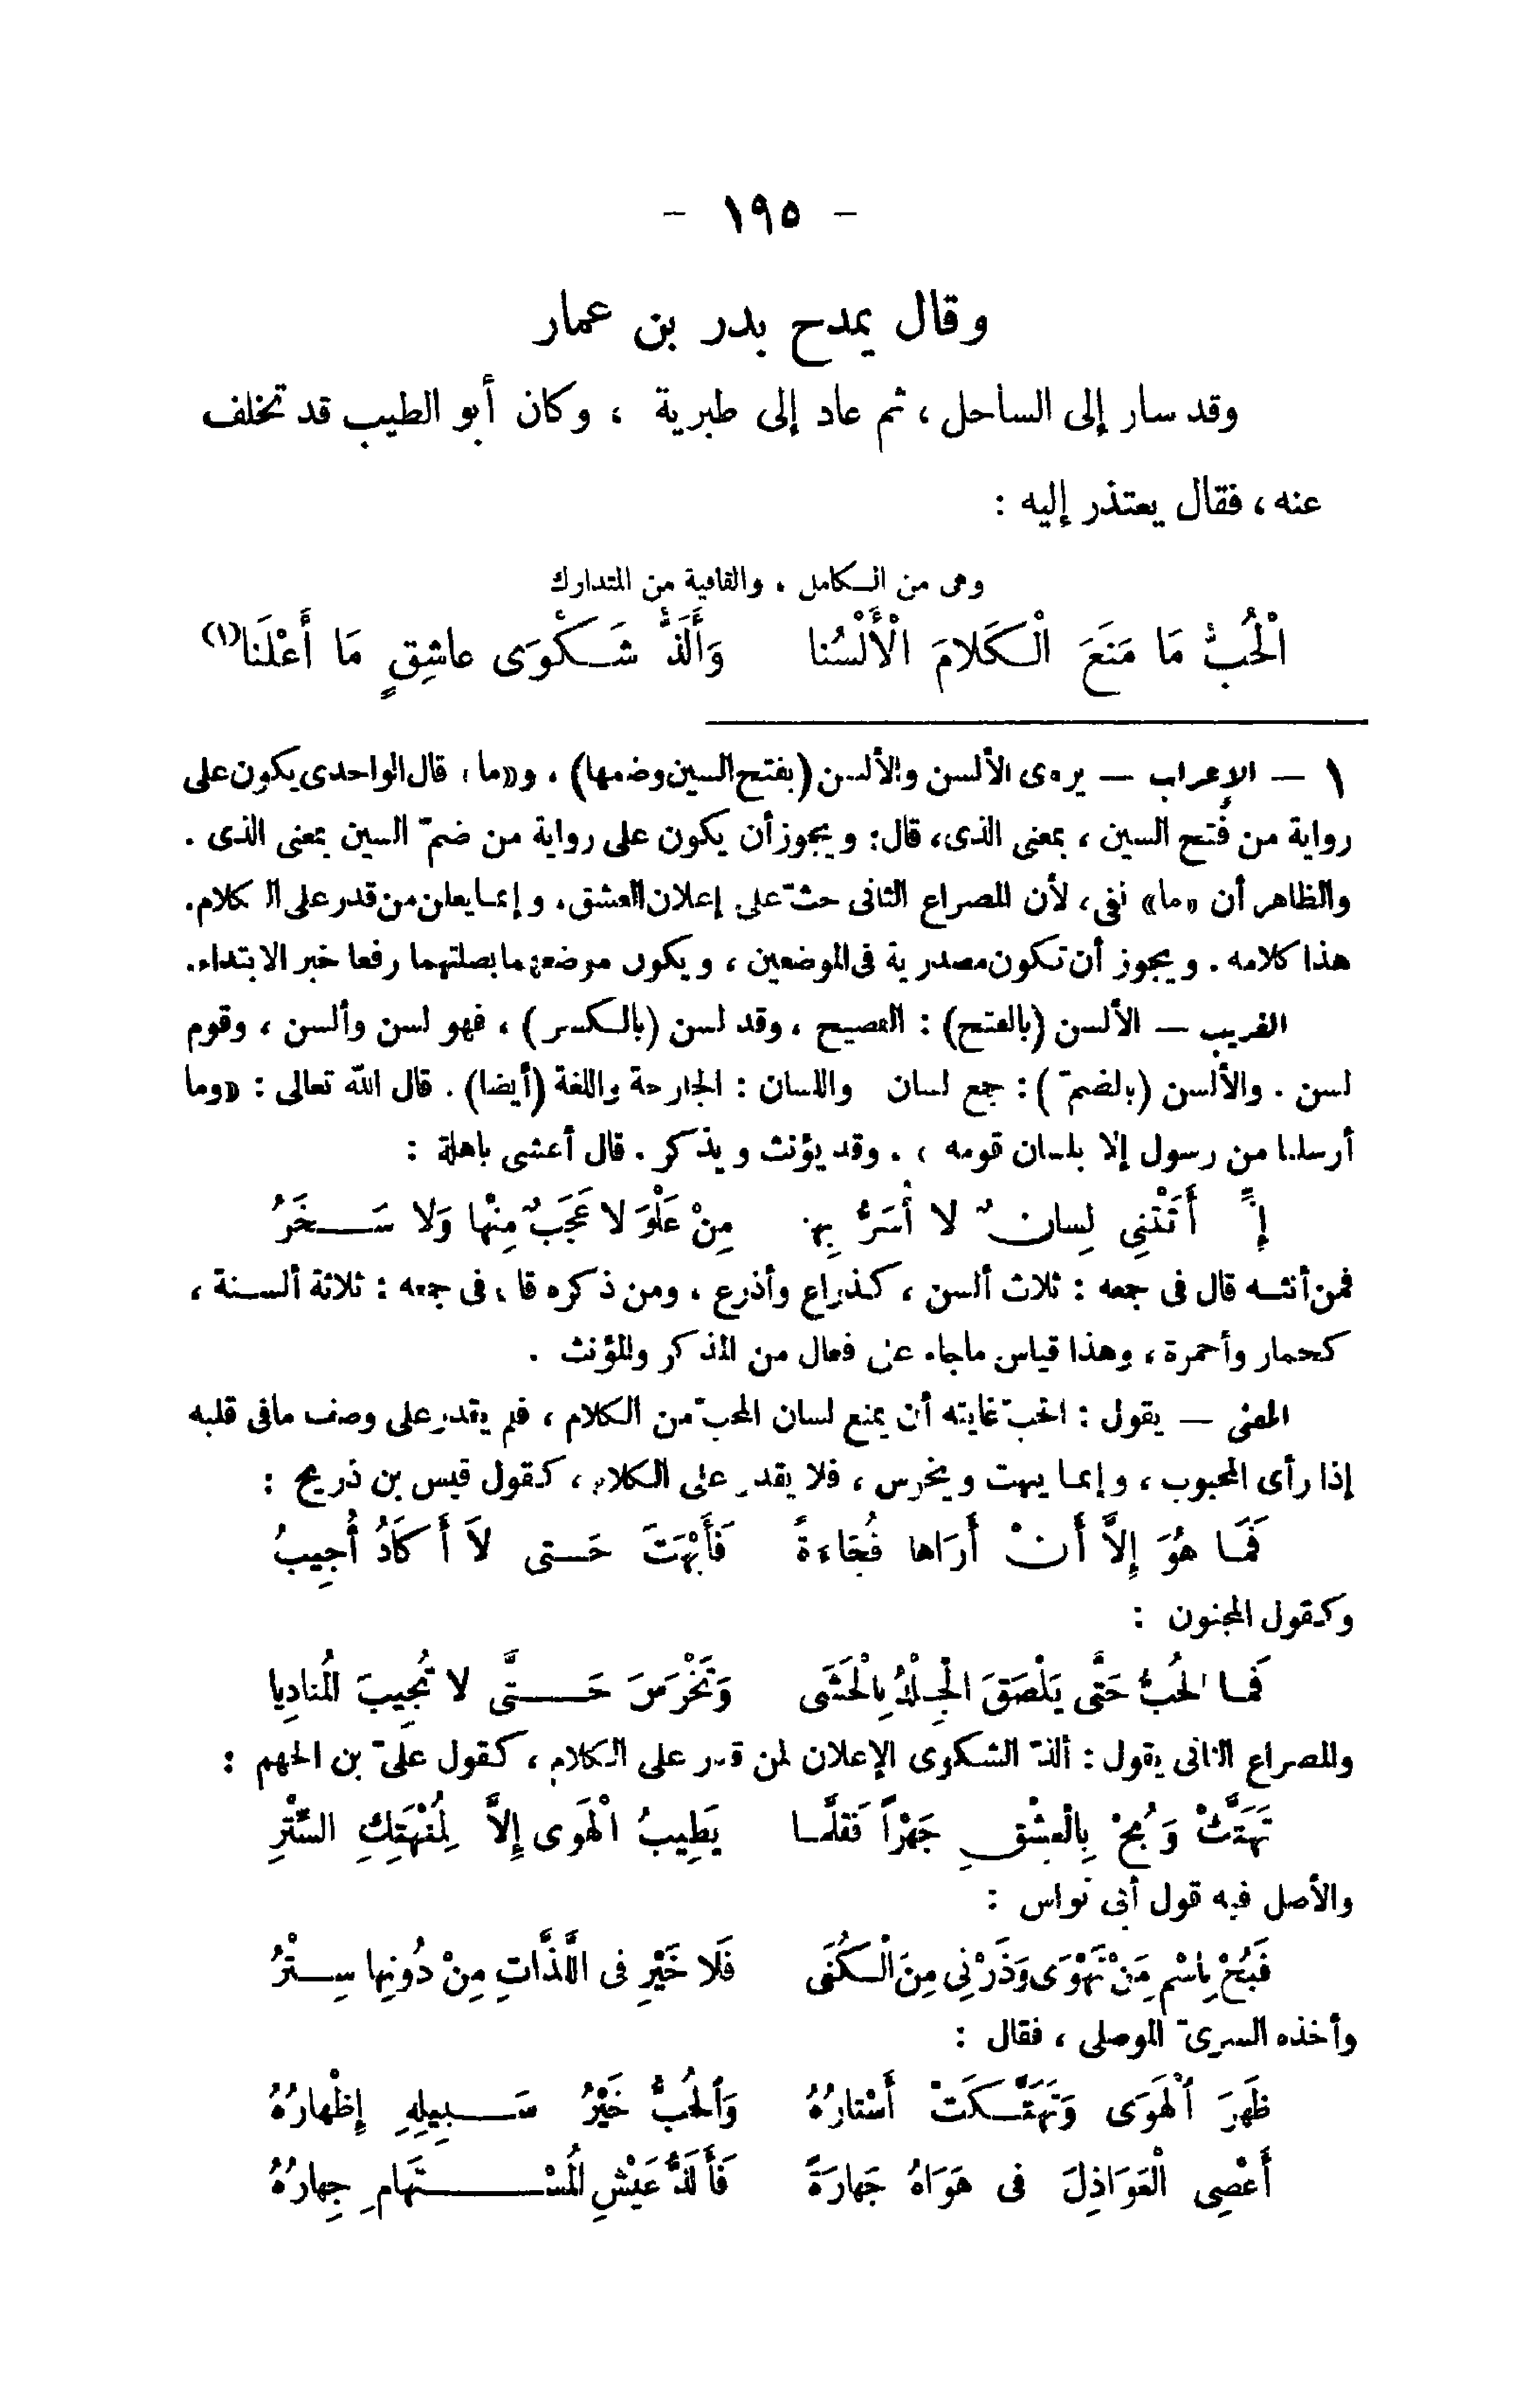 - ١٩٥ -
وقال يمدح بدر بن عمار
وقد سار إلى الساحل ، ثم عاد إلى طبرية ، وكان أبو الطيب قد تخلف
عنه ، فقال يعتذر إليه :
وهى من الكامل ، والقافية من المتدارك
اْلْحُبُّ مَا مَنَعَ الْكَلامَ الْأَلْسُنا وَأَلَذُّ شَكْوَى عاشِقٍ مَا أَعْلَنَا(١)
١ — الإعراب — يروى الألسن والألسن (بفتح السين وضمها) ، و«ما» قال الواحدى يكون على
رواية من فتح السين ، بمعنى الذى، قال: ويجوز أن يكون على رواية من ضمّ السين بمعنى الذى .
والظاهر أن «ما» نفى، لأن المصراع الثانى حثّ على إعلان العشق، وإنما يعلن من قدر على الكلام.
هذا كلامه . ويجوز أن تكون مصدرية فى الموضعين ، ويكون موضعهما بصلتهما رفعا خبر الابتداء.
الغريب — الألسن (بالفتح) : الفصيح ، وقد لسن (بالكسر) ، فهو لسن وألسن ، وقوم
لسن . والألسن (بالضمّ) : جمع لسان واللسان : الجارحة واللغة (أيضا) . قال الله تعالى : «وما
أرسلنا من رسول إلا بلسان قومه » . وقد يؤنث ويذكر . قال أعشى باهلة :
إِنِّى أَتَتْنِى لِسانٌ لا أُسَرُّ بِها مِنْ عَلْوَ لا عَجَبٌ مِنْها وَلا سَخَرُ
فمن أنثه قال فى جمعه : ثلاث ألسن ، كذراع وأذرع ، ومن ذكره قال فى جمعه : ثلاثة ألسنة ،
كحمار وأحمرة ، وهذا قياس ماجاء على فعال من المذكر والمؤنث .
المعنى — يقول : الحبّ غايته أن يمنع لسان المحبّ من الكلام ، فلم يقدر على وصف مافى قلبه
إذا رأى المحبوب ، وإنما يبهت ويخرس ، فلا يقدر على الكلام ، كقول قيس بن ذريح :
فَمَا هُوَ إِلاَّ أَنْ أَرَاها فُجَاءَةً فَأَبْهَتَ حَتى لاَ أَكَادُ أُجِيبُ
وكقول المجنون :
فَمَا الحُبُّ حَتَّى يَلْصَقَ الْجِلْدُ بِالْحَشَى وَتَخْرَسَ حَتَّى لا تُجِيبَ المُنادِيا
والمصراع الثانى يقول : ألذّ الشكوى الإعلان لمن قدر على الكلام ، كقول علىّ بن الجهم :
تَهَتَّكْ وَبُحْ بِالْعِشْقِ جَهْراً فَقَلَّمَا يَطِيبُ الْهَوَى إِلاَّ لِمُنْهَتِكِ السِّتْرِ
والأصل فيه قول أبى نواس :
فَبُحْ بِاسْمِ مَنْ تَهْوَى وَذَرْنِى مِنَ الْكُنَى فَلا خَيْرِ فى اللَّذَّاتِ مِنْ دُونِها سِتْرُ
وأخذه السرىّ الموصلى ، فقال :
ظَهَرَ الْهَوَى وَتَهَتَّكَتْ أَسْتارُهُ وَالْحُبُّ خَيْرُ سَبِيلِهِ إِظْهارُهُ
أَعْصِى الْعَوَاذِلَ فى هَوَاهُ جَهارَةً فَأَلَذُّ عَيْشِ المُسْتَهامِ جِهارُهُ